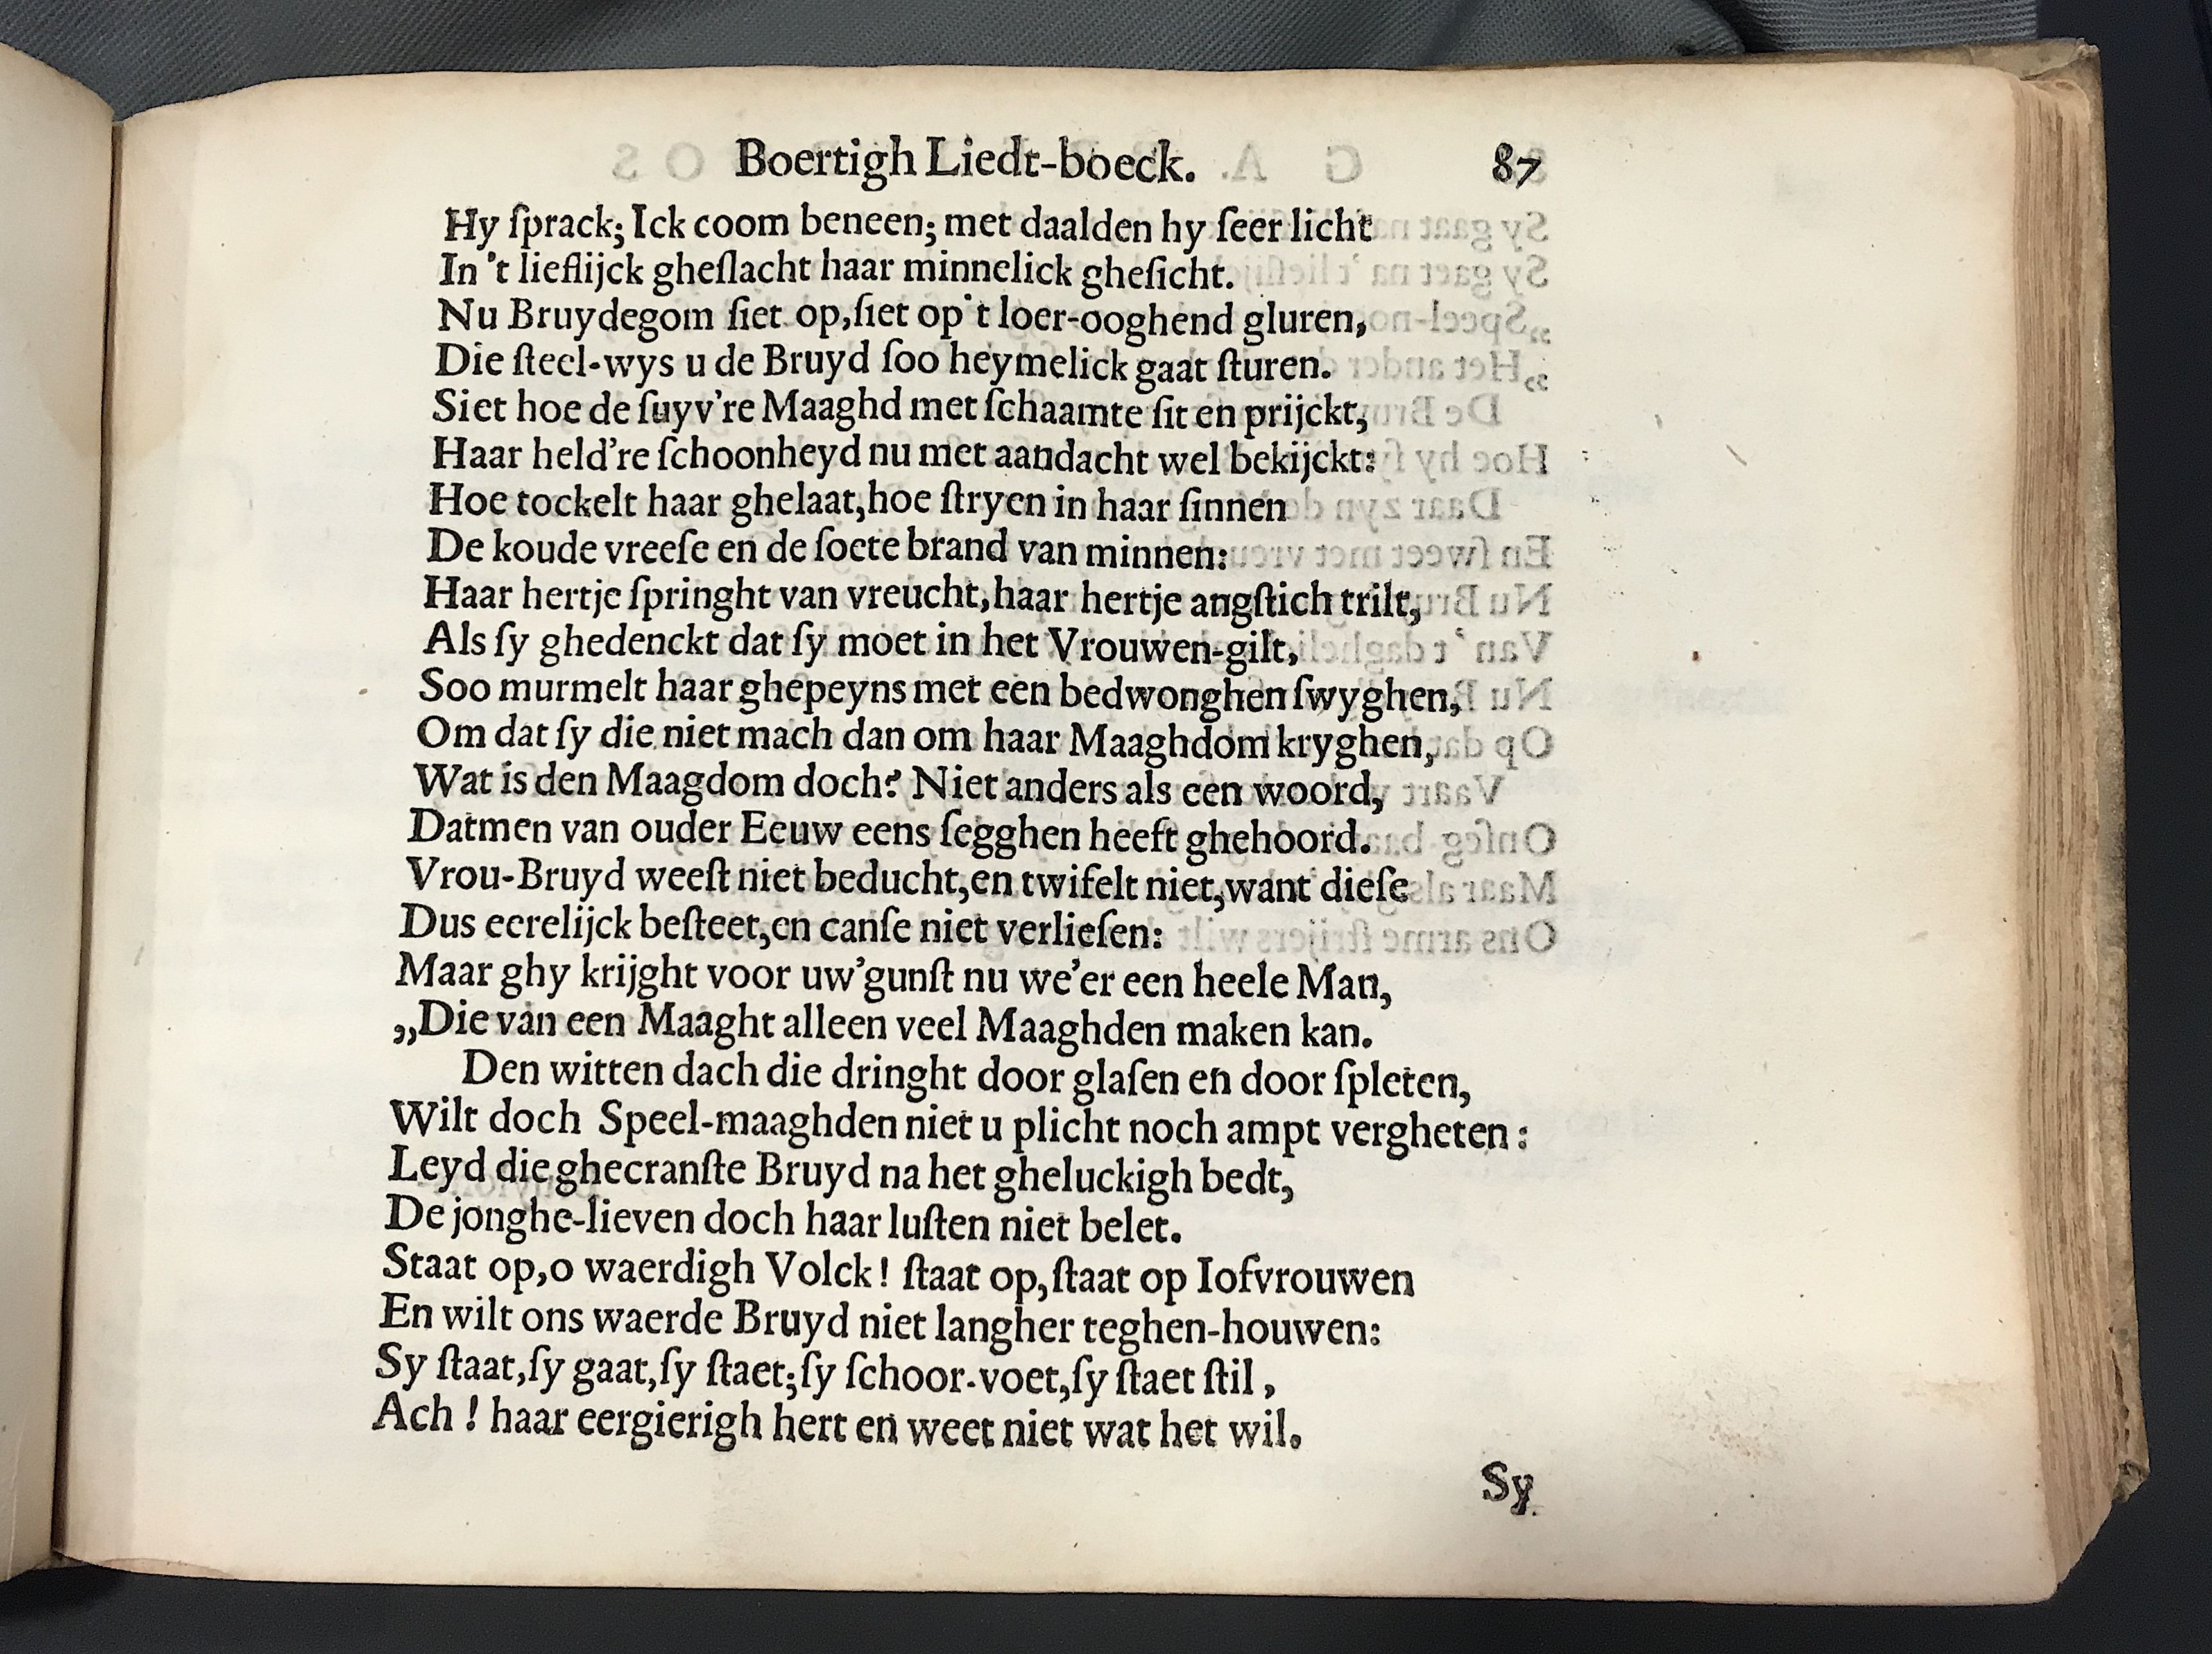 Boertigh Liedt-boeck. 87
Hy ſprack; Ick coom beneen; met daalden hy ſeer licht
In 't lieflijck gheſlacht haar minnelick gheſicht.
Nu Bruydegom ſiet op, ſiet op 't loer-ooghend gluren,
Die ſteel-wys u de Bruyd ſoo heymelick gaat ſturen.
Siet hoe de ſuyv're Maaghd met ſchaamte ſit en prijckt,
Haar held're ſchoonheyd nu met aandacht wel bekijckt:
Hoe tockelt haar ghelaat, hoe ſtryen in haar ſinnen
De koude vreeſe en de ſoete brand van minnen:
Haar hertje ſpringht van vreucht, haar hertje angſtich trilt,
Als ſy ghedenckt dat ſy moet in het Vrouwen-gilt,
Soo murmelt haar ghepeyns met een bedwonghen ſwyghen,
Om dat ſy die niet mach dan om haar Maaghdom kryghen,
Wat is den Maagdom doch? Niet anders als een woord,
Datmen van ouder Eeuw eens ſegghen heeft ghehoord.
Vrou-Bruyd weeſt niet beducht, en twifelt niet, want dieſe
Dus eerelijck beſteet, en canſe niet verlieſen:
Maar ghy krijght voor uw' gunſt nu we'er een heele Man,
„Die van een Maaght alleen veel Maaghden maken kan.
Den witten dach die dringht door glaſen en door ſpleten,
Wilt doch Speel-maaghden niet u plicht noch ampt vergheten:
Leyd die ghecranſte Bruyd na het gheluckigh bedt,
De jonghe-lieven doch haar luſten niet belet.
Staat op, o waerdigh Volck! ſtaat op, ſtaat op Iofvrouwen
En wilt ons waerde Bruyd niet langher teghen-houwen:
Sy ſtaat, ſy gaat, ſy ſtaet; ſy ſchoor-voet, ſy ſtaet ſtil,
Ach! haar eergierigh hert en weet niet wat het wil.
Sy